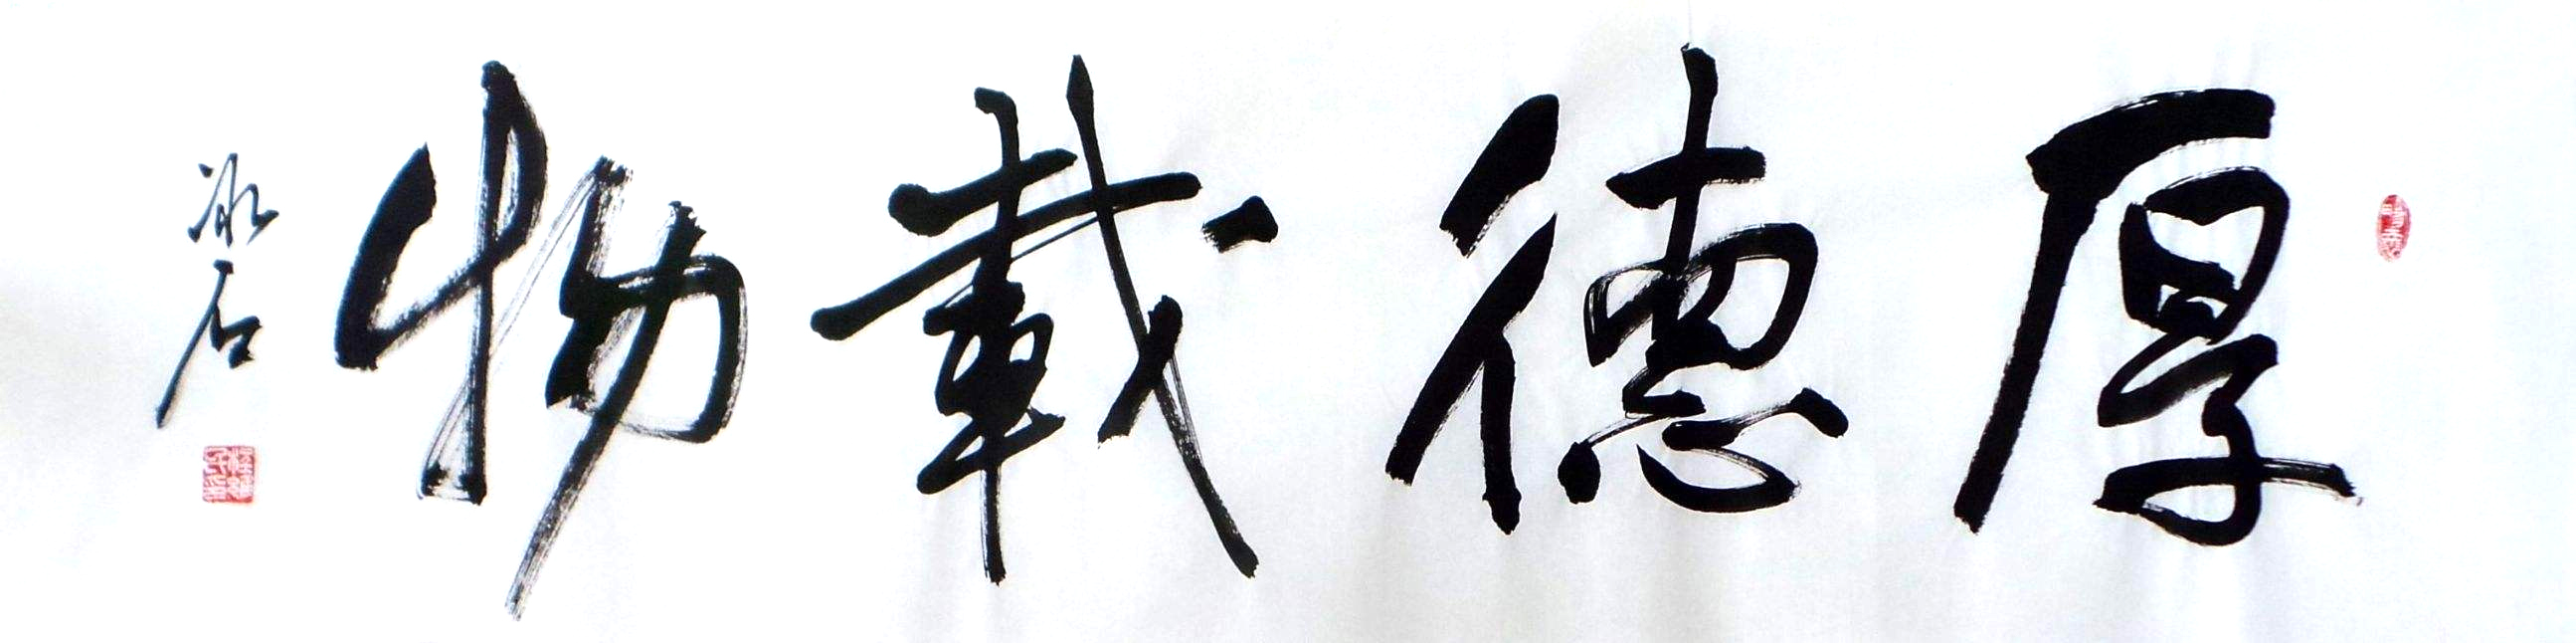 厚德載物
冰石